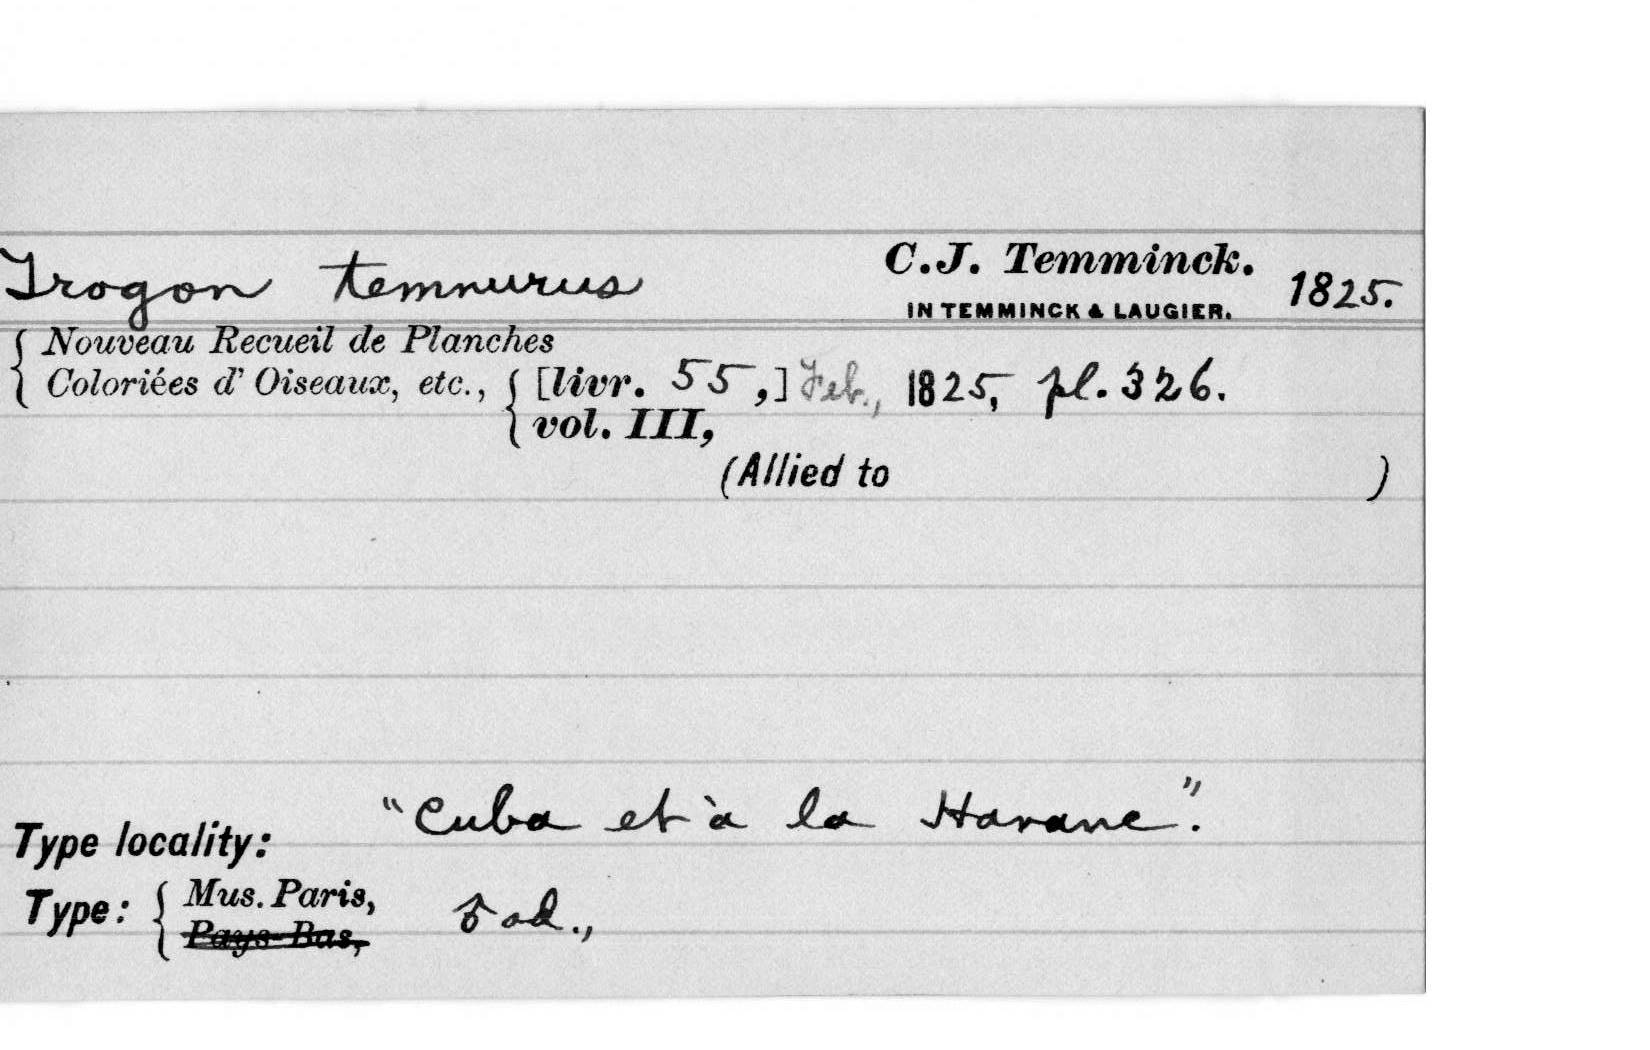 Trogon temnurus C.J. Temminck. 1825.
IN TEMMINCK & LAUGIER.
Nouveau Recueil de Planches
Coloriées d' Oiseaux, etc., [livr. 55,] Feb., 1825, pl. 326.
vol. III,
(Allied to )
"Cuba et à la Havane".
Type locality:
Type: Mus. Paris, ad.,
Pays-Bas,